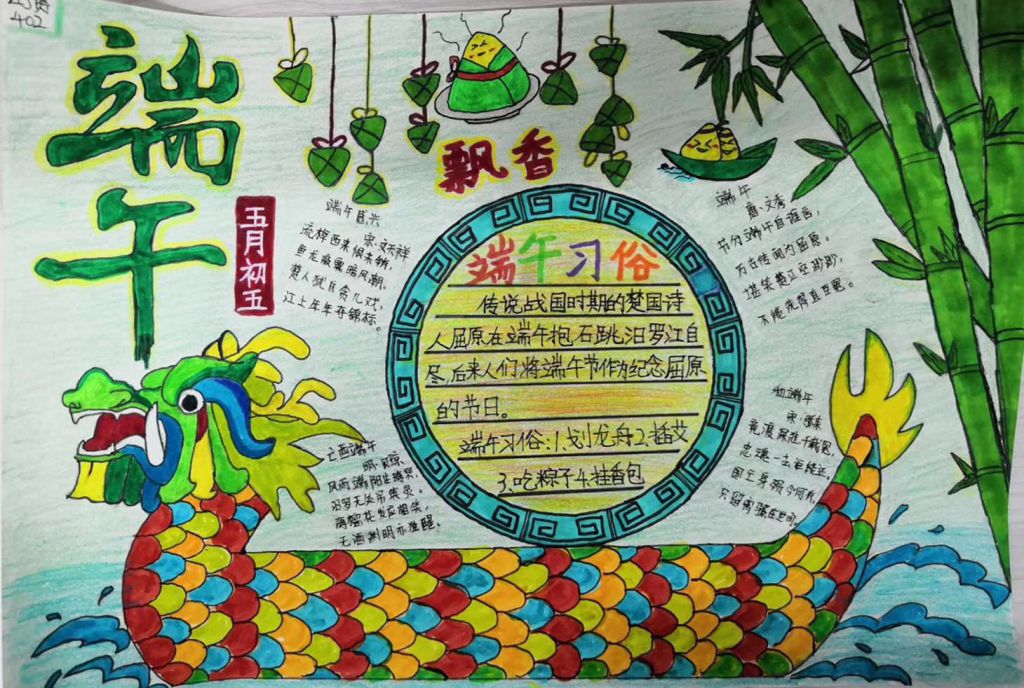 402
端午
五月初五
飘香
端午即兴
宋·文天祥
流棹西来恨未销,
鱼龙寂寞暗风潮。
楚人犹自贪儿戏,
江上年年夺锦标。
端午
唐·文秀
节分端午自谁言,
万古传闻为屈原。
堪笑楚江空渺渺,
不能洗得直臣冤。
端午习俗
传说战国时期的楚国诗
人屈原在端午抱石跳汨罗江自
尽,后来人们将端午节作为纪念屈原
的节日。
端午习俗:1.划龙舟2.插艾
3.吃粽子4.挂香包
已酉端午
风雨端阳生晦冥,
汨罗无处吊英灵。
海榴花发应相笑,
无酒渊明亦独醒。
和端午
竞渡深悲千载冤,
忠魂一去讵能还。
国亡身殒今何有,
只留离骚在世间。